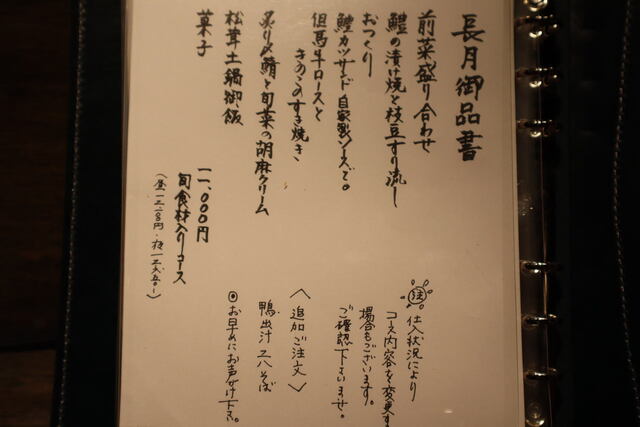 長月御品書
前菜盛り合わせ
鱧の漬け焼と枝豆すり流し
おつくり
鱧カツサンド 自家製ソースで。
但馬牛ロースと
きのこのすき焼き
炙り〆鯖と旬菜の胡麻クリーム
松茸土鍋御飯
菓子
一一、〇〇〇円
旬食材入りコース
注 仕入状況により
コース内容を変更す
場合もございます。
ご確認下さいませ。
〈追加ご注文〉
鴨出汁二八そば
◎お早めにお声がけ下さい。